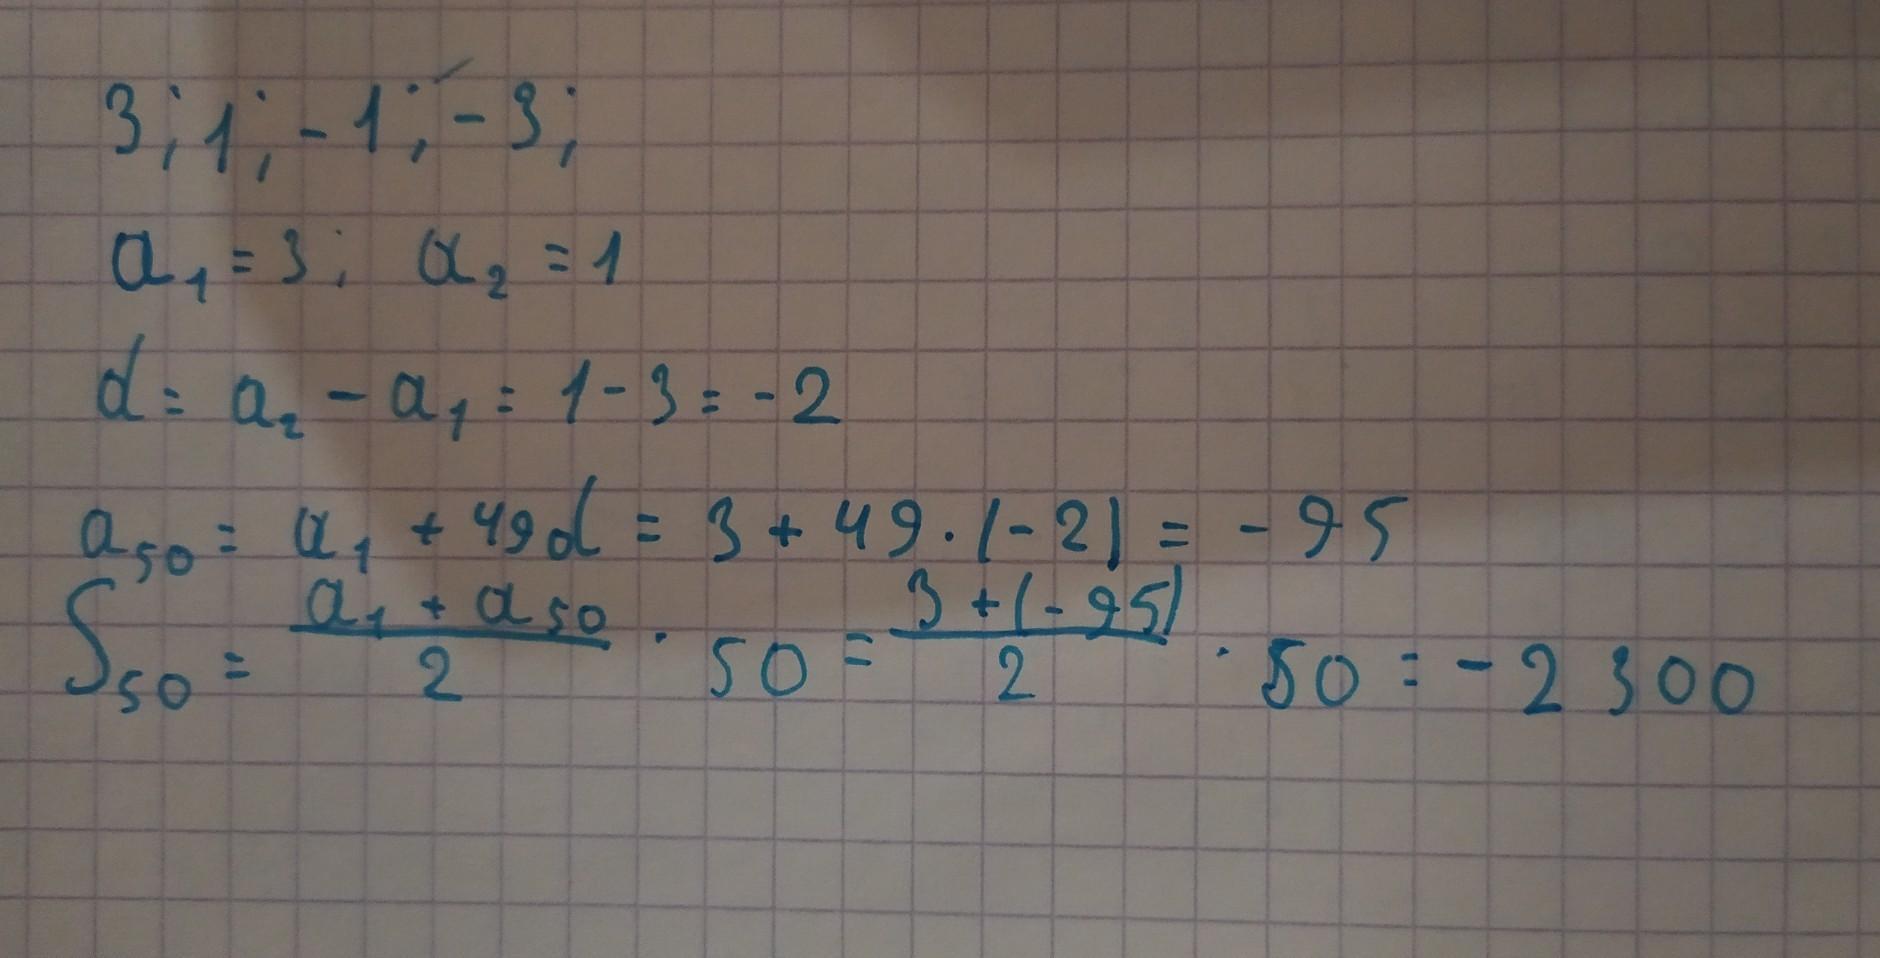 3; 1; -1; -3;
a₁ = 3; a₂ = 1
d = a₂ - a₁ = 1 - 3 = -2
a₅₀ = a₁ + 49d = 3 + 49 · (-2) = -95
S₅₀ = (a₁ + a₅₀)/2 · 50 = (3 + (-95))/2 · 50 = -2300